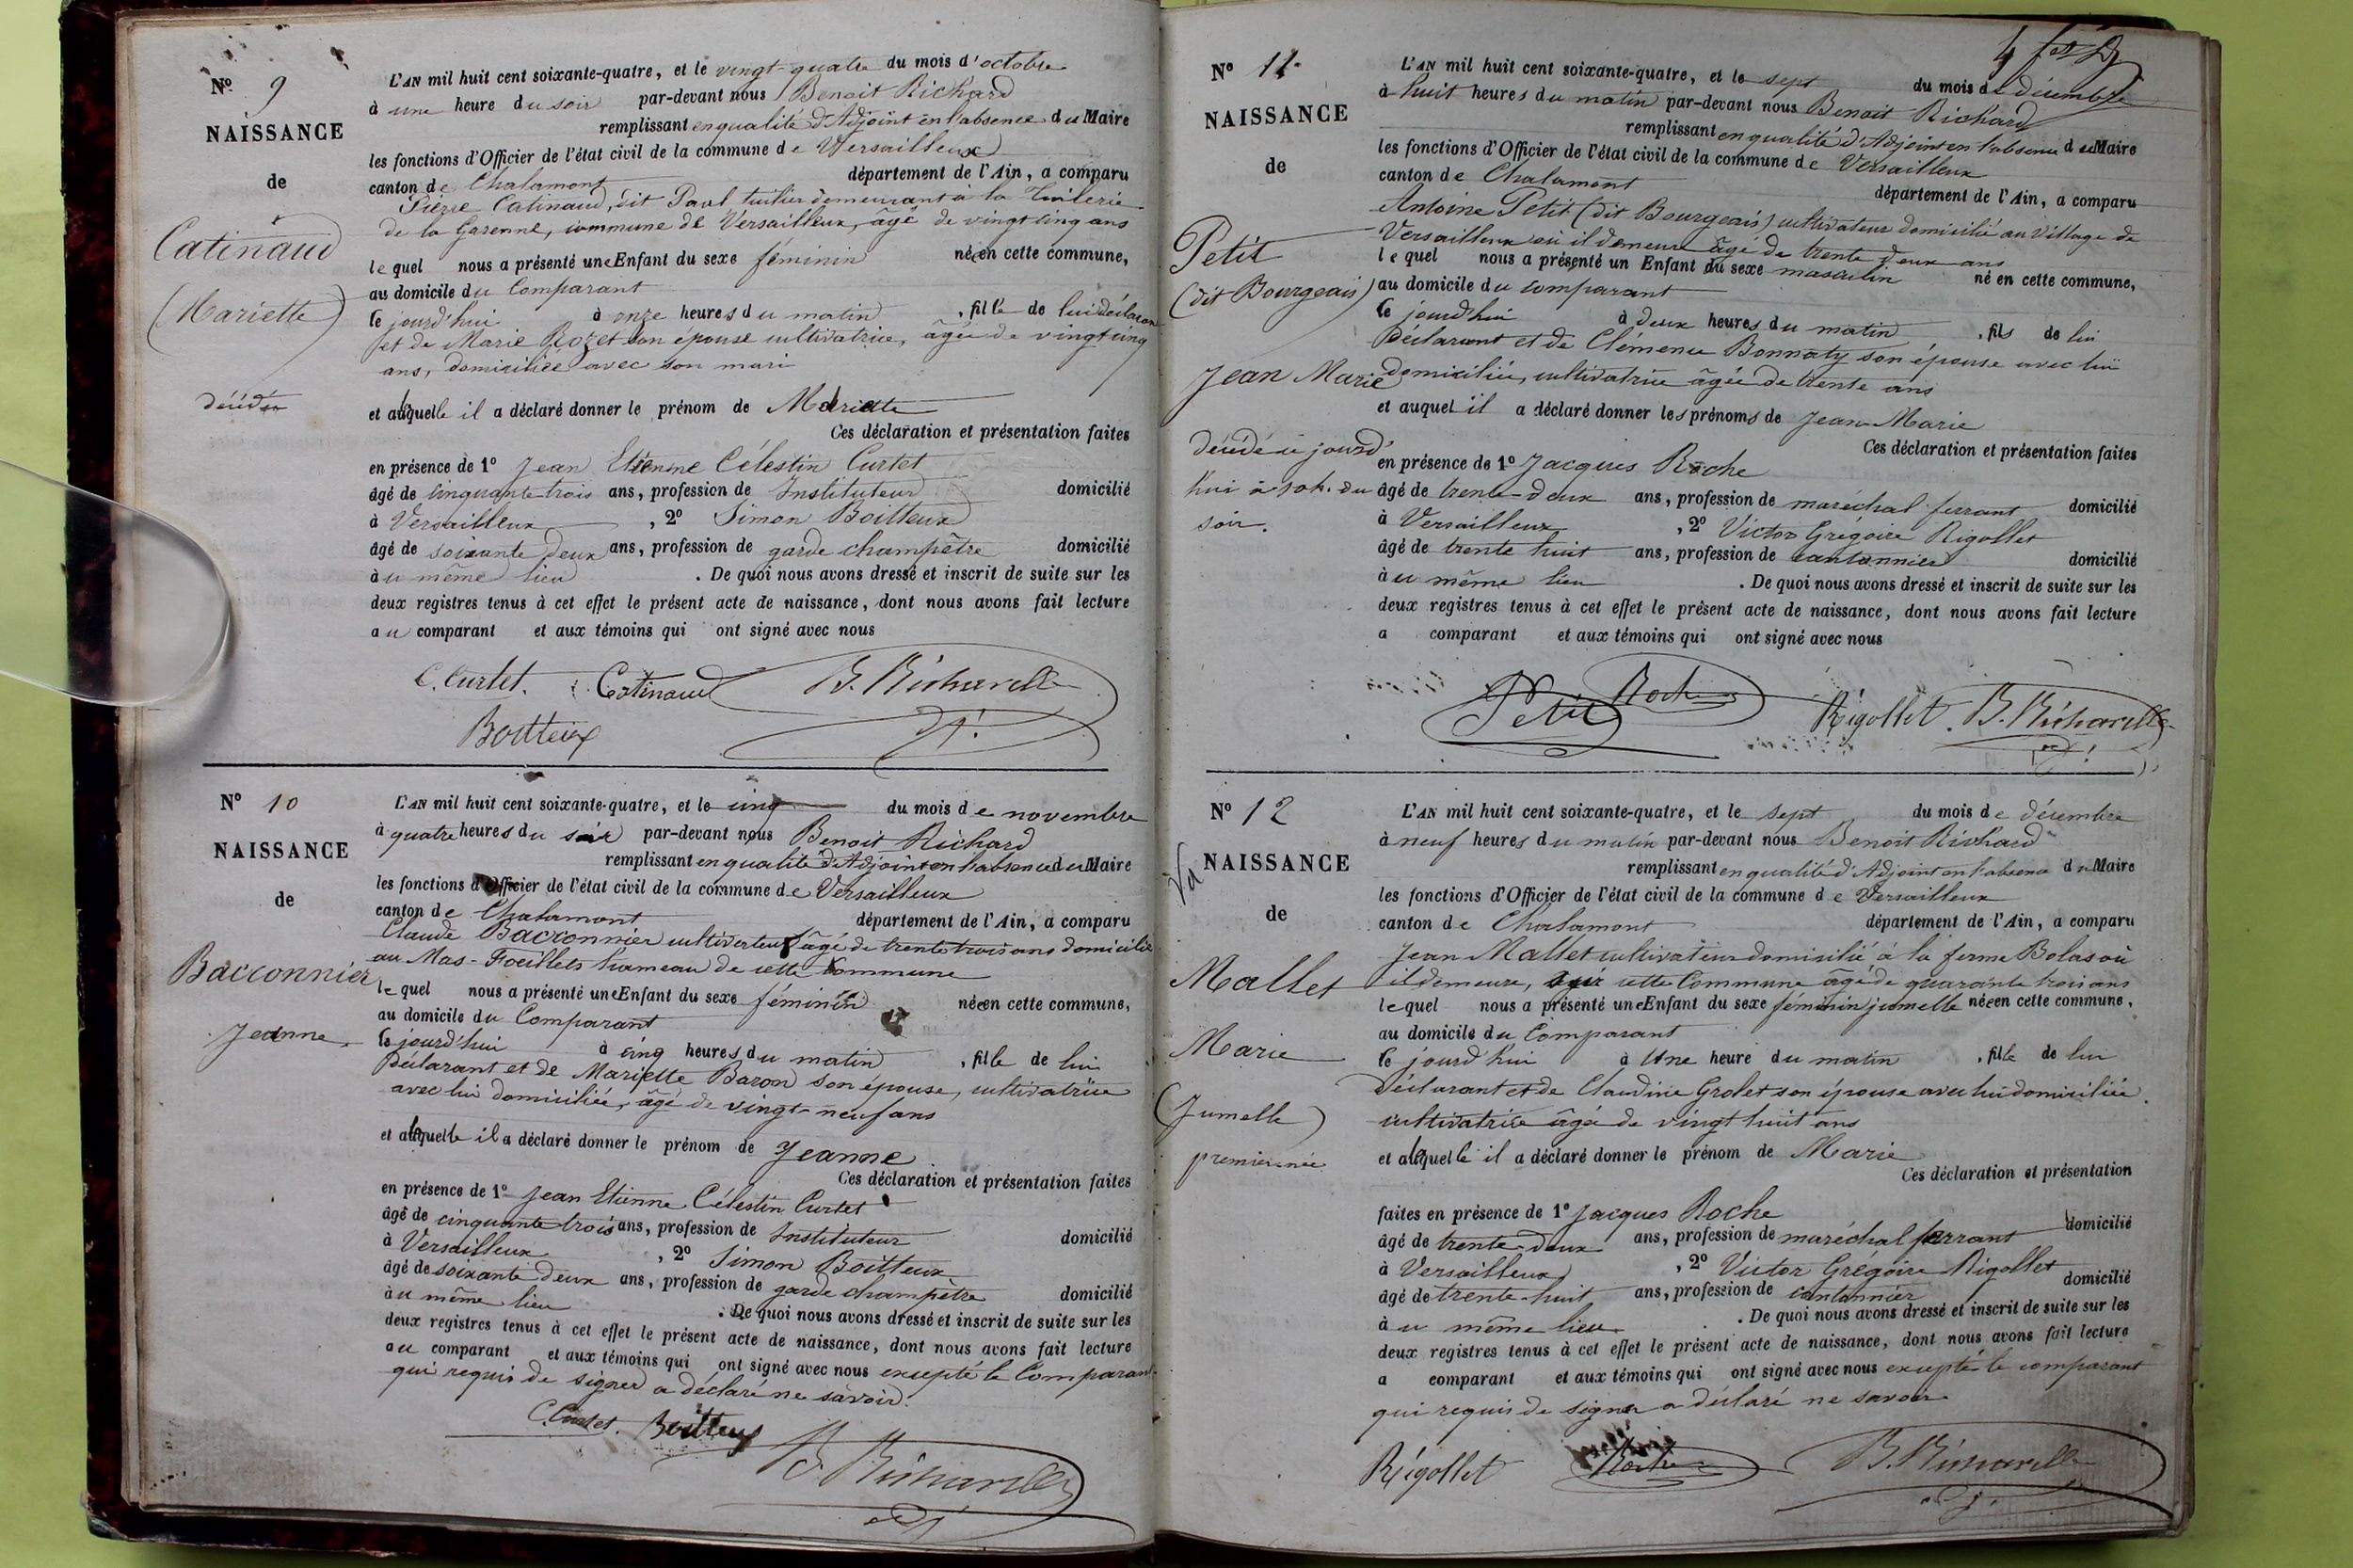 Nº 9
NAISSANCE
de
Catinaud
(Mariette)
décédée
L'AN mil huit cent soixante-quatre, et le vingt-quatre du mois d'octobre
à une heure du soir par-devant nous Benoit Richard
remplissant en qualité d'Adjoint en l'absence du Maire
les fonctions d'Officier de l'état civil de la commune de Versailleux
canton de Chalamont département de l'Ain, a comparu
Pierre Catinaud, dit Paul tuilier demeurant à la Tuilerie
de la Garenne, commune de Versailleux, âgé de vingt cinq ans
lequel nous a présenté une Enfant du sexe féminin née en cette commune,
au domicile du Comparant
ce jourd'hui à onze heures du matin, fille de lui déclarant
et de Marie Rozet son épouse cultivatrice, âgée de vingt cinq
ans, domiciliée avec son mari
et à laquelle il a déclaré donner le prénom de Mariette
Ces déclaration et présentation faites
en présence de 1º Jean Etienne Célestin Curtet
âgé de cinquante trois ans, profession de Instituteur domicilié
à Versailleux, 2º Simon Boitteux
âgé de soixante deux ans, profession de garde champêtre domicilié
au même lieu. De quoi nous avons dressé et inscrit de suite sur les
deux registres tenus à cet effet le présent acte de naissance, dont nous avons fait lecture
au comparant et aux témoins qui ont signé avec nous
C. Curtet. Catinaud B. Richard
Boitteux
Nº 10
NAISSANCE
de
Bacconnier
Jeanne
L'AN mil huit cent soixante-quatre, et le cinq du mois de novembre
à quatre heures du soir par-devant nous Benoit Richard
remplissant en qualité d'Adjoint en l'absence du Maire
les fonctions d'Officier de l'état civil de la commune de Versailleux
canton de Chalamont département de l'Ain, a comparu
Claude Bacconnier cultivateur âgé de trente trois ans domicilié
au Mas-Foeillets hameau de cette Commune
lequel nous a présenté une Enfant du sexe féminin née en cette commune,
au domicile du Comparant
ce jourd'hui à cinq heures du matin, fille de lui
Déclarant et de Mariette Baron son épouse, cultivatrice
avec lui domiciliée, âgé de vingt-neuf ans
et à laquelle il a déclaré donner le prénom de Jeanne
Ces déclaration et présentation faites
en présence de 1º Jean Etienne Célestin Curtet
âgé de cinquante trois ans, profession de Instituteur domicilié
à Versailleux, 2º Simon Boitteux
âgé de soixante deux ans, profession de garde champêtre domicilié
au même lieu. De quoi nous avons dressé et inscrit de suite sur les
deux registres tenus à cet effet le présent acte de naissance, dont nous avons fait lecture
au comparant et aux témoins qui ont signé avec nous excepté le Comparant
qui requis de signer a déclaré ne savoir.
C. Curtet. Boitteux
B. Richard
Nº 11
NAISSANCE
de
Petit
(dit Bourgeois)
Jean Marie
décédé ce jourd'
hui à 10h. du
soir.
L'AN mil huit cent soixante-quatre, et le sept du mois de décembre
à huit heures du matin par-devant nous Benoit Richard
remplissant en qualité d'Adjoint en l'absence du Maire
les fonctions d'Officier de l'état civil de la commune de Versailleux
canton de Chalamont département de l'Ain, a comparu
Antoine Petit (dit Bourgeois) cultivateur domicilié au village de
Versailleux où il demeure âgé de trente deux ans
lequel nous a présenté un Enfant du sexe masculin né en cette commune,
au domicile du comparant
ce jourd'hui à deux heures du matin, fils de lui
Déclarant et de Clémence Bonnaty son épouse avec lui
domiciliée, cultivatrice âgée de trente ans
et auquel il a déclaré donner les prénoms de Jean Marie
Ces déclaration et présentation faites
en présence de 1º Jacques Roche
âgé de trente-deux ans, profession de maréchal ferrant domicilié
à Versailleux, 2º Victor Grégoire Rigollet
âgé de trente huit ans, profession de cantonnier domicilié
au même lieu. De quoi nous avons dressé et inscrit de suite sur les
deux registres tenus à cet effet le présent acte de naissance, dont nous avons fait lecture
a comparant et aux témoins qui ont signé avec nous
Petit Roche Rigollet B. Richard
Nº 12
NAISSANCE
de
Mallet
Marie
(Jumelle)
première née
L'AN mil huit cent soixante-quatre, et le sept du mois de décembre
à neuf heures du matin par-devant nous Benoit Richard
remplissant en qualité d'Adjoint en l'absence du Maire
les fonctions d'Officier de l'état civil de la commune de Versailleux
canton de Chalamont département de l'Ain, a comparu
Jean Mallet cultivateur domicilié à la ferme Bolas où
il demeure, sur cette Commune âgé de quarante trois ans
lequel nous a présenté une Enfant du sexe féminin jumelle née en cette commune,
au domicile du Comparant
ce jourd'hui à Une heure du matin, fille de lui
Déclarant et de Claudine Grolet son épouse avec lui domiciliée
cultivatrice âgé de vingt huit ans
et à laquelle il a déclaré donner le prénom de Marie
Ces déclaration et présentation
faites en présence de 1º Jacques Roche
âgé de trente-deux ans, profession de maréchal ferrant domicilié
à Versailleux, 2º Victor Grégoire Rigollet
âgé de trente-huit ans, profession de cantonnier domicilié
au même lieu. De quoi nous avons dressé et inscrit de suite sur les
deux registres tenus à cet effet le présent acte de naissance, dont nous avons fait lecture
a comparant et aux témoins qui ont signé avec nous excepté le comparant
qui requis de signer a déclaré ne savoir
Rigollet Roche B. Richard